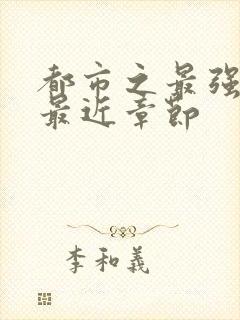 都市之最强
最近章节
李和义